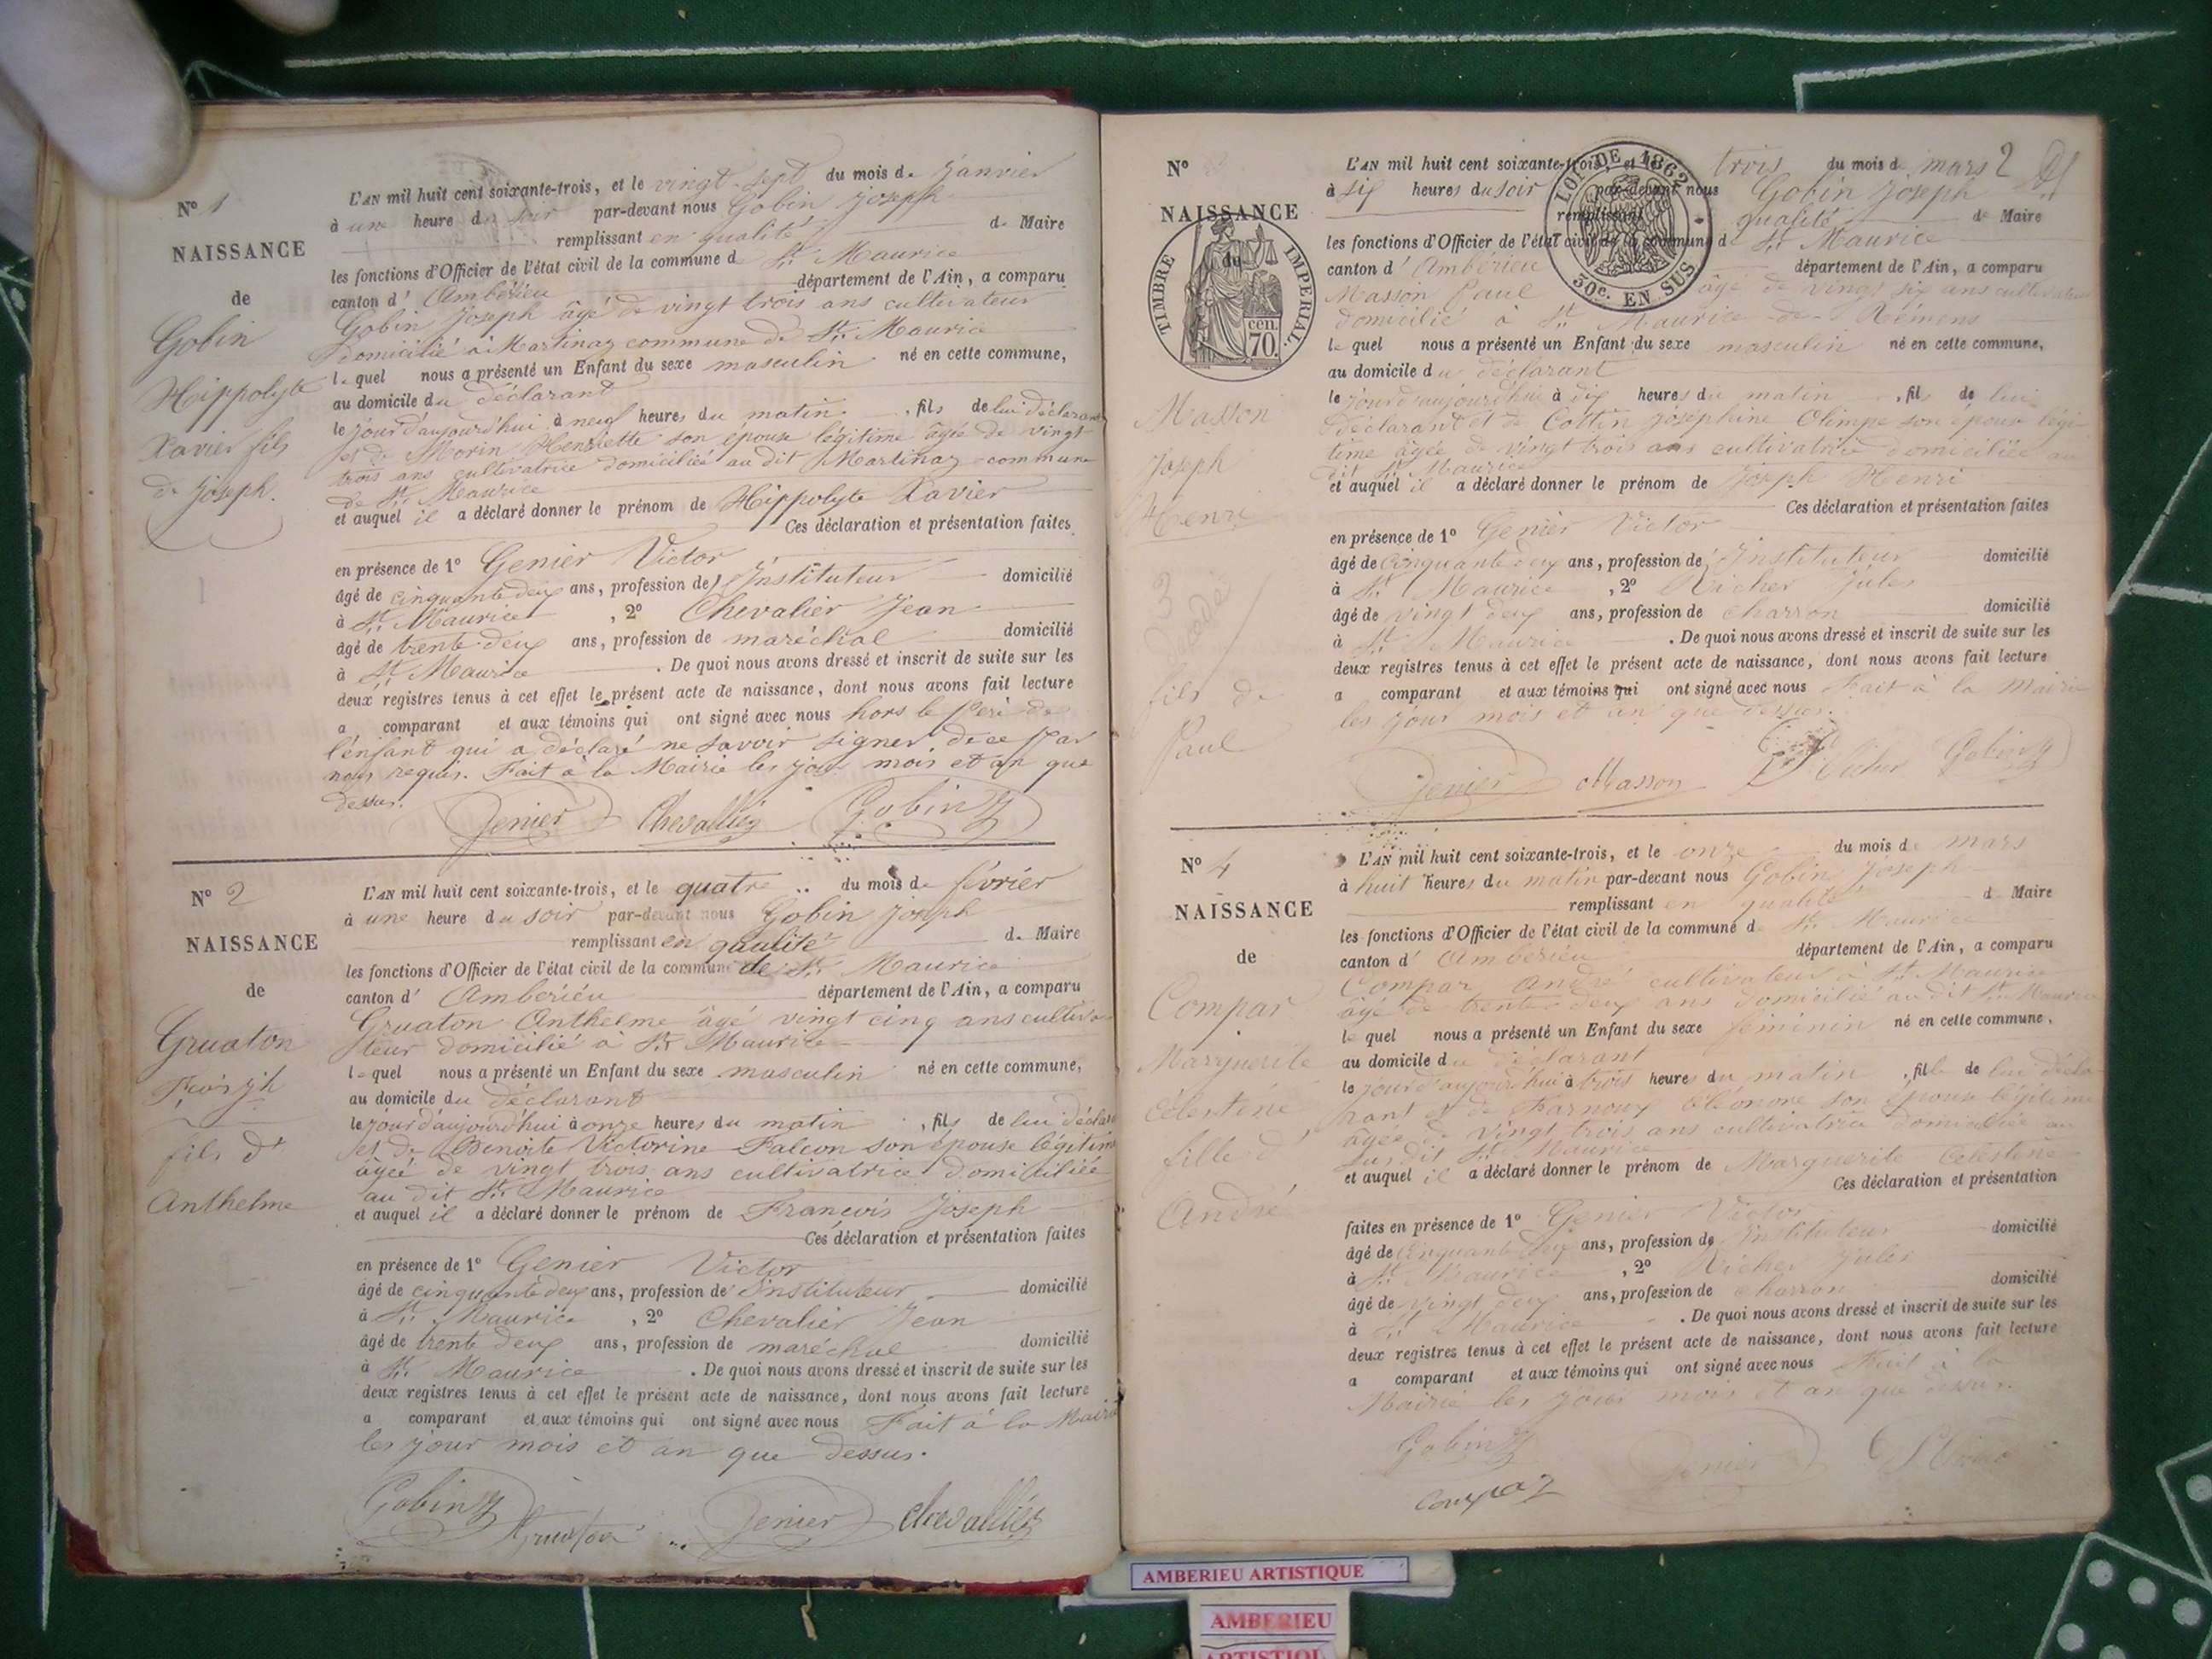 N° 1
NAISSANCE
de
Gobin
Hippolyte
Xavier fils
de joseph.
L'AN mil huit cent soixante-trois, et le vingt-sept du mois de Janvier
à une heure du soir par-devant nous Gobin joseph
remplissant en qualité de Maire
les fonctions d'Officier de l'état civil de la commune d St Maurice
canton d' Ambérieu département de l'Ain, a comparu
Gobin Joseph âgé de vingt trois ans cultivateur
domicilié à Martinaz commune de St Maurice
lequel nous a présenté un Enfant du sexe masculin né en cette commune,
au domicile du déclarant
le jour d'aujourd'hui à neuf heures du matin, fils de lui déclarant
et de Morin Henriette son épouse légitime âgée de vingt
trois ans cultivatrice domiciliée au dit Martinaz commune
de St Maurice
et auquel il a déclaré donner le prénom de Hippolyte Xavier
Ces déclaration et présentation faites
en présence de 1° Genier Victor
âgé de cinquante deux ans, profession de Instituteur domicilié
à St Maurice, 2° Chevalier Jean
âgé de trente deux ans, profession de maréchal domicilié
à St Maurice. De quoi nous avons dressé et inscrit de suite sur les
deux registres tenus à cet effet le présent acte de naissance, dont nous avons fait lecture
a comparant et aux témoins qui ont signé avec nous hors le Père de
l'enfant qui a déclaré ne savoir signer de ce par
nous requis. Fait à la Mairie les jour mois et an que
dessus.
Genier Chevallier Gobin J
N° 2
NAISSANCE
de
Gruaton
fils d'
Anthelme
L'AN mil huit cent soixante-trois, et le quatre du mois de février
à une heure du soir par-devant nous Gobin joseph
remplissant en qualité de Maire
les fonctions d'Officier de l'état civil de la commune de St Maurice
canton d' Ambérieu département de l'Ain, a comparu
Gruaton Anthelme âgé vingt cinq ans cultiva
teur domicilié à St Maurice
lequel nous a présenté un Enfant du sexe masculin né en cette commune,
au domicile du déclarant
le jour d'aujourd'hui à onze heures du matin, fils de lui déclarant
et de Benoite Victorine Falcon son épouse légitime
âgée de vingt trois ans cultivatrice domiciliée
au dit St Maurice
et auquel il a déclaré donner le prénom de François Joseph
Ces déclaration et présentation faites
en présence de 1° Genier Victor
âgé de cinquante deux ans, profession de Instituteur domicilié
à St Maurice, 2° Chevalier Jean
âgé de trente deux ans, profession de maréchal domicilié
à St Maurice. De quoi nous avons dressé et inscrit de suite sur les
deux registres tenus à cet effet le présent acte de naissance, dont nous avons fait lecture
a comparant et aux témoins qui ont signé avec nous Fait à la Mairie
les jour mois et an que dessus.
Gobin J Gruaton Genier chevallier
N°
NAISSANCE
de
TIMBRE IMPERIAL.
cen.
70.
Masson
Joseph
Henri
3
fils de
Paul
LOI DE 1862
30c. EN SUS
2
L'AN mil huit cent soixante-trois, et le trois du mois d mars
à six heures du soir par-devant nous Gobin Joseph
remplissant qualité de Maire
les fonctions d'Officier de l'état civil de la commune d St Maurice
canton d' Ambérieu département de l'Ain, a comparu
Masson Paul âgé de vingt six ans cultivateur
domicilié à St Maurice de Rémens
lequel nous a présenté un Enfant du sexe masculin né en cette commune,
au domicile du déclarant
le jour d'aujourd'hui à dix heures du matin, fil de lui
déclarant et de Cottin joséphine Olimpe son épouse légi
time âgée de vingt trois ans cultivatrice domiciliée au
dit St Maurice
et auquel il a déclaré donner le prénom de Joseph Henri
Ces déclaration et présentation faites
en présence de 1° Genier Victor
âgé de cinquante deux ans, profession de Instituteur domicilié
à St Maurice, 2° Richer Jules
âgé de vingt deux ans, profession de charron domicilié
à St Maurice. De quoi nous avons dressé et inscrit de suite sur les
deux registres tenus à cet effet le présent acte de naissance, dont nous avons fait lecture
a comparant et aux témoins qui ont signé avec nous Fait à la Mairie
les jour mois et an que dessus.
Genier Masson Richer Gobin J
N° 4
NAISSANCE
de
Compar
Marguerite
Célestine
fille d'
André
L'AN mil huit cent soixante-trois, et le onze du mois d mars
à huit heures du matin par-devant nous Gobin Joseph
remplissant en qualité d Maire
les fonctions d'Officier de l'état civil de la commune d St Maurice
canton d' Ambérieu département de l'Ain, a comparu
Compar André cultivateur à St Maurice
âgé de trente deux ans domicilié au dit St Maurice
lequel nous a présenté un Enfant du sexe féminin né en cette commune,
au domicile du déclarant
le jour d'aujourd'hui à trois heures du matin, fille de lui décla
rant et de son épouse légitime
âgée de vingt trois ans cultivatrice domiciliée au
sus dit St Maurice
et auquel il a déclaré donner le prénom de Marguerite Célestine
Ces déclaration et présentation
faites en présence de 1° Genier Victor
âgé de cinquante deux ans, profession de Instituteur domicilié
à St Maurice, 2° Richer Jules
âgé de vingt deux ans, profession de charron domicilié
à St Maurice. De quoi nous avons dressé et inscrit de suite sur les
deux registres tenus à cet effet le présent acte de naissance, dont nous avons fait lecture
a comparant et aux témoins qui ont signé avec nous Fait à la
Mairie les jour mois et an que dessus.
Gobin J Genier
Compar
AMBERIEU ARTISTIQUE
AMBERIEU
ARTISTIQUE